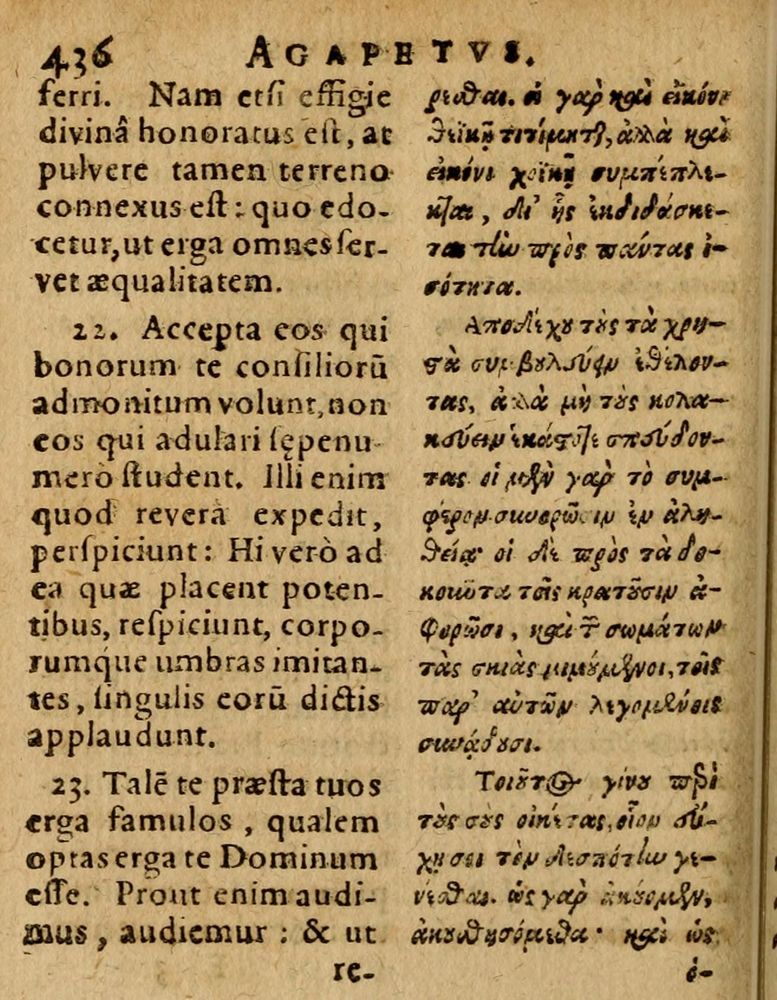 436 AGAPETVS.
ferri. Nam etsi effigie
divinâ honoratus est, at
pulvere tamen terreno
connexus est: quo edo-
cetur, ut erga omnes ser-
vet æqualitatem.
22. Accepta eos qui
bonorum te consiliorū
admonitum volunt, non
eos qui adulari sępenu
merò student. Illi enim
quod reverà expedit,
perspiciunt: Hi verò ad
ea quæ placent poten-
tibus, respiciunt, corpo-
rumque umbras imitan-
tes, singulis eorū dictis
applaudunt.
23. Talē te præsta tuos
erga famulos, qualem
optas erga te Dominum
esse. Prout enim audi-
mus, audiemur: & ut
re-
ρεσθαι. εἰ γὰρ καὶ εἰκόνι
θεϊκῇ τετίμηται, ἀλλὰ καὶ
εἰκόνι χοϊκῇ συμπέπλε-
κται, δι' ἧς ἐκδιδάσκε-
ται τὴν πρὸς πάντας ἰ-
σότητα.
Ἀποδέχου τοὺς τὰ χρη-
στὰ συμβουλεύειν ἐθέλον-
τας, ἀλλὰ μὴ τοὺς κολα-
κεύειν ἑκάστοτε σπεύδον-
τας οἱ μὲν γὰρ τὸ συμ-
φέρον συνορῶσιν ἐν ἀλη-
θείᾳ· οἱ δὲ πρὸς τὰ δο-
κοῦντα τοῖς κρατοῦσιν ἀ-
φορῶσι, καὶ τῶν σωμάτων
τὰς σκιὰς μιμούμενοι, τοῖς
παρ' αὐτῶν λεγομένοις
συνᾴδουσι.
Τοιοῦτος γίνου περὶ
τοὺς σοὺς οἰκέτας, οἷον εὔ-
χῃ σοι τὸν δεσπότην γε-
νέσθαι. ὡς γὰρ ἀκούομεν,
ἀκουσθησόμεθα· καὶ ὡς
ὁ-